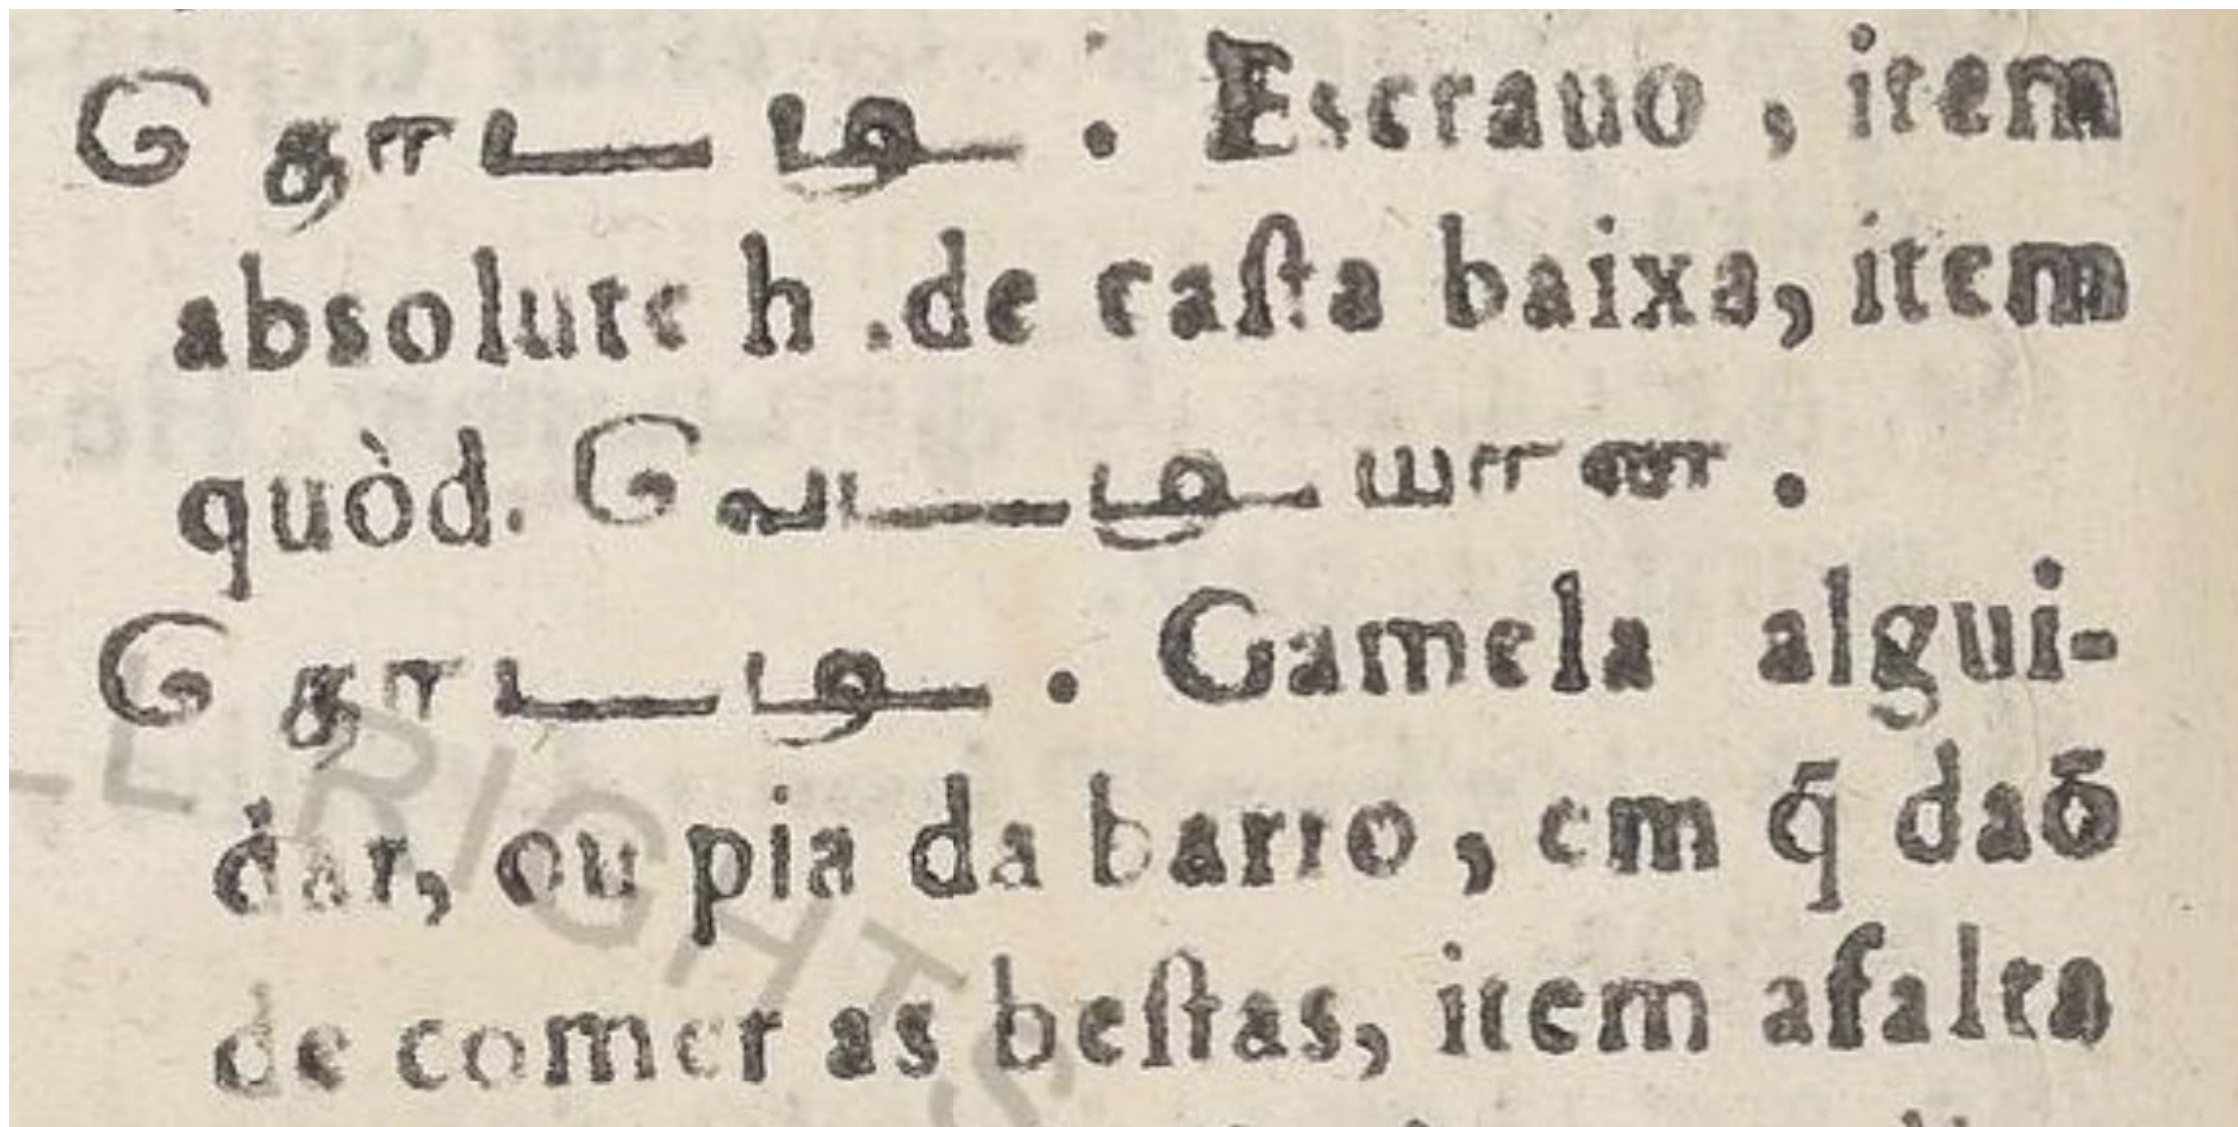 தொடடி . Escrauo , item
absolute h .de caſta baixa, item
quòd. வெடடியான .
தொடடி . Gamela algui-
dar, ou pia da barro , em q̃ daõ
de comer as beſtas, item afalta
RIGHTS